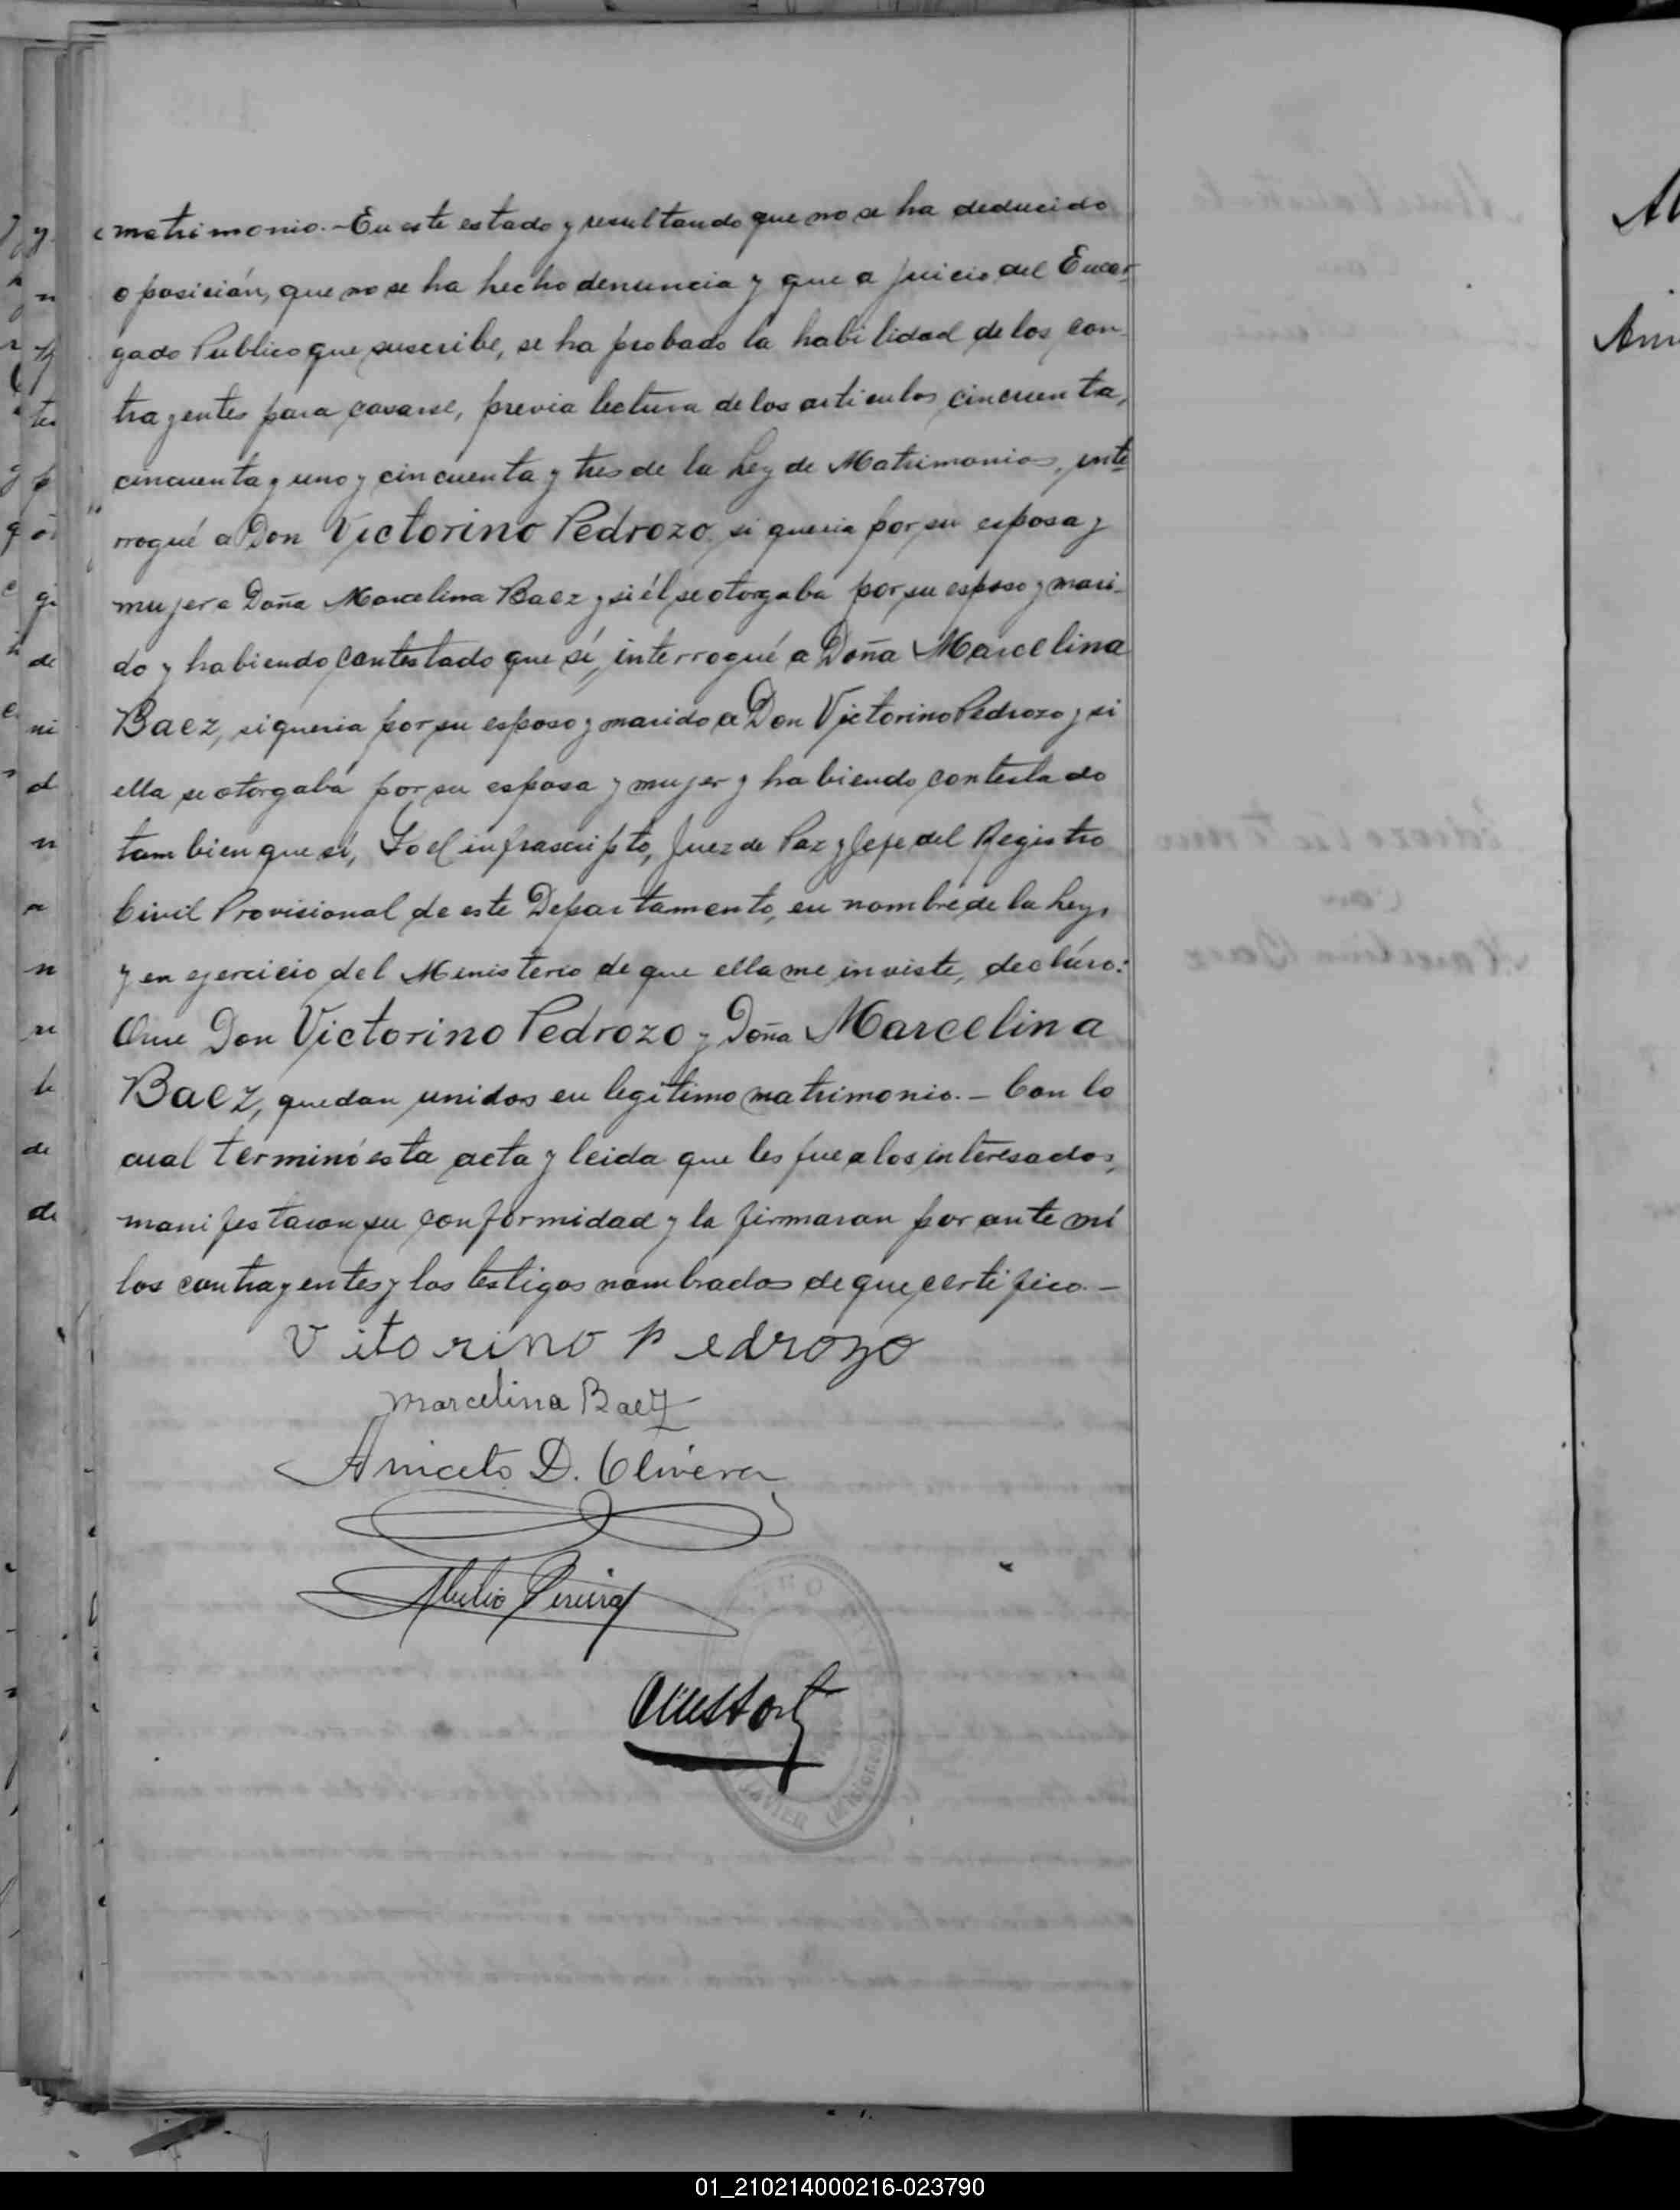 matrimonio.-En este estado y resultando que no se ha deducido
oposición, que no se ha hecho denuncia y que a juicio del Encar-
gado Publico que suscribe, se ha probado la habilidad de los con-
trayentes para casarse, previa lectura de los articulos cincuenta,
cincuenta y uno y cincuenta y tres de la Ley de Matrimonios, inte
rrogué a Don Victorino Pedrozo, si queria por su esposa y
mujer a Doña Marcelina Baez y si él se otorgaba por su esposo y mari-
do y habiendo contestado que sí, interrogué a Doña Marcelina
Baez, si queria por su esposo y marido a Don Victorino Pedrozo y si
ella se otorgaba por su esposa y mujer y habiendo contestado
tambien que sí, Yo el infrascripto, Juez de Paz y Jefe del Registro
Civil Provisional de este Departamento, en nombre de la Ley,
y en ejercicio del Ministerio de que ella me inviste, decláro:
Que Don Victorino Pedrozo y Doña Marcelina
Baez, quedan unidos en legítimo matrimonio.- Con lo
cual terminó esta acta y leida que les fue a los interesados,
manifestaron su conformidad y la firmaron por ante mí
los contrayentes y los testigos nombrados de que certifico.-
Vitorino Pedrozo
Marcelina Baez
Aniceto D. Olivera
Pereira
JAVIER (Misiones)
01_210214000216-023790